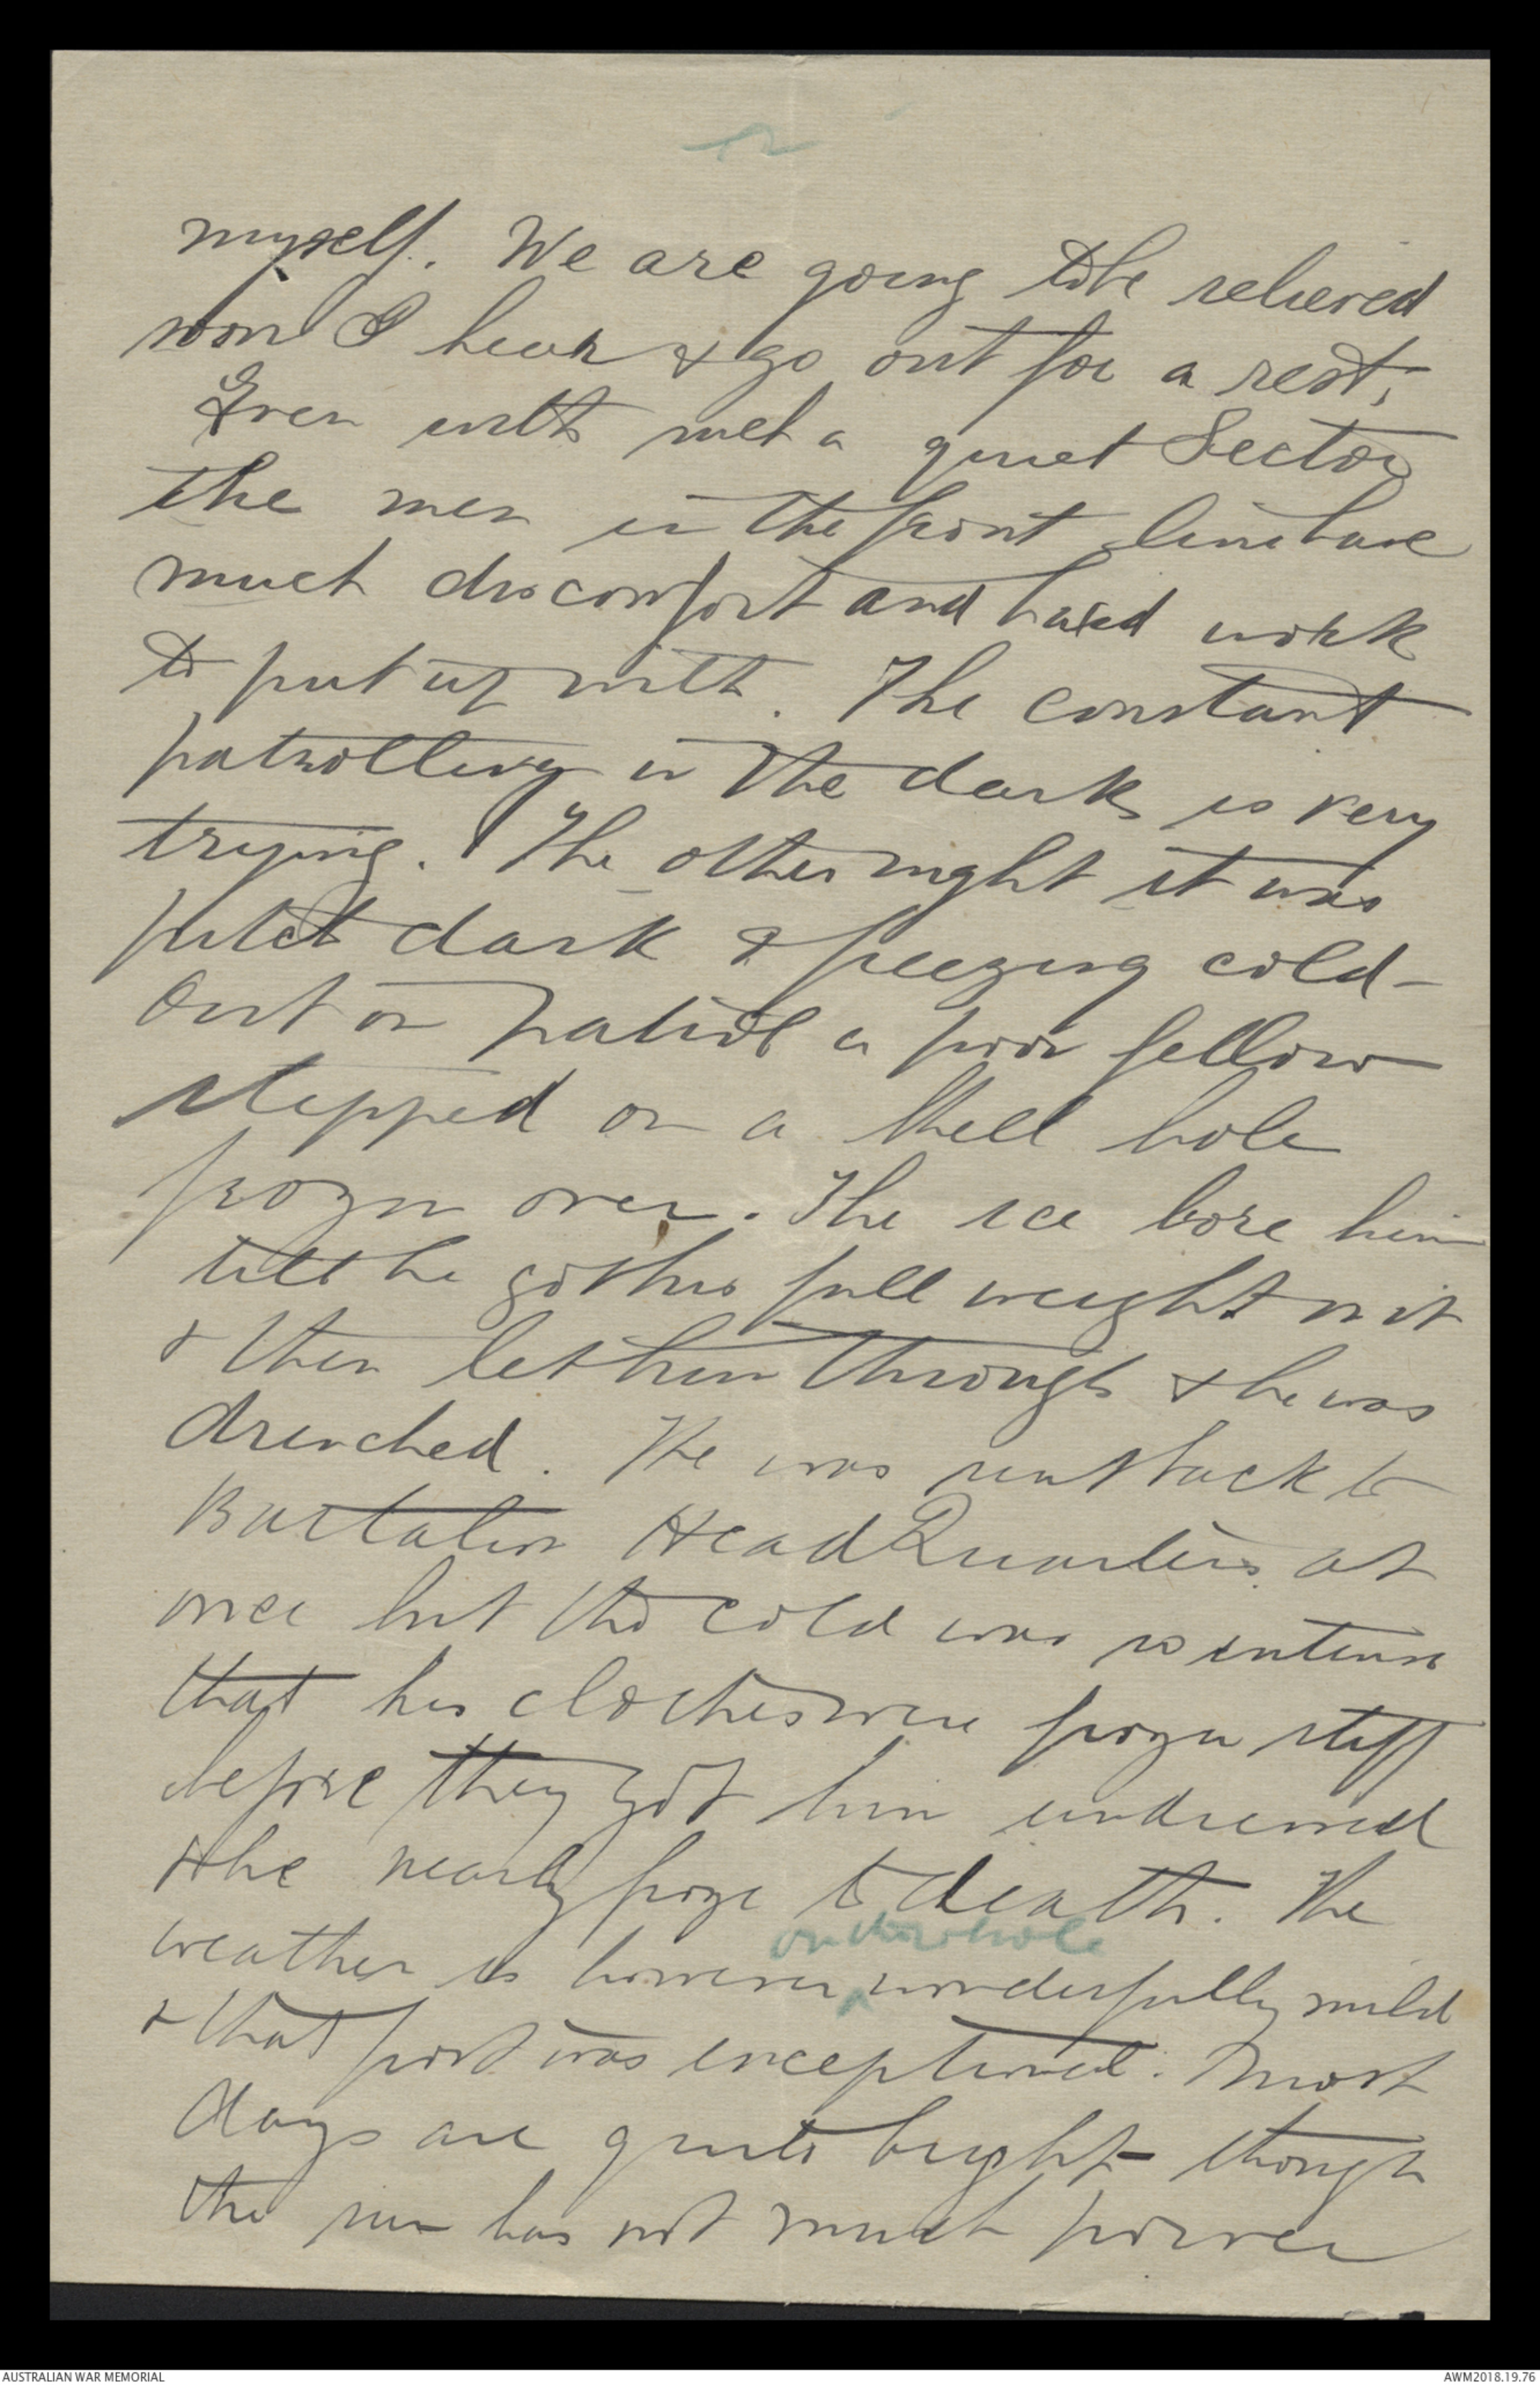 12
myself. We are going to be relieved
soon I hear & go out for a rest.
Even with such a quiet Sector
the men in the front line have
much discomfort and hard work
to put up with. The constant
patrolling in the dark is very
trying. The other night it was
pitch dark & freezing cold -
Out on patrol a poor fellow
stepped on a shell hole
frozen over. The ice bore him
till he got his full weight on it
& then let him through & he was
drenched. He was sent back to
Battalion Head Quarters at
once but the cold was so intense
that his clothes were frozen stiff
before they got him undressed
& he nearly froze to death. The
on the whole
weather is however wonderfully mild
& that was exceptional. Most
days are quite bright - though
the sun has not much power
AUSTRALIAN WAR MEMORIAL
AWM2018.19.76